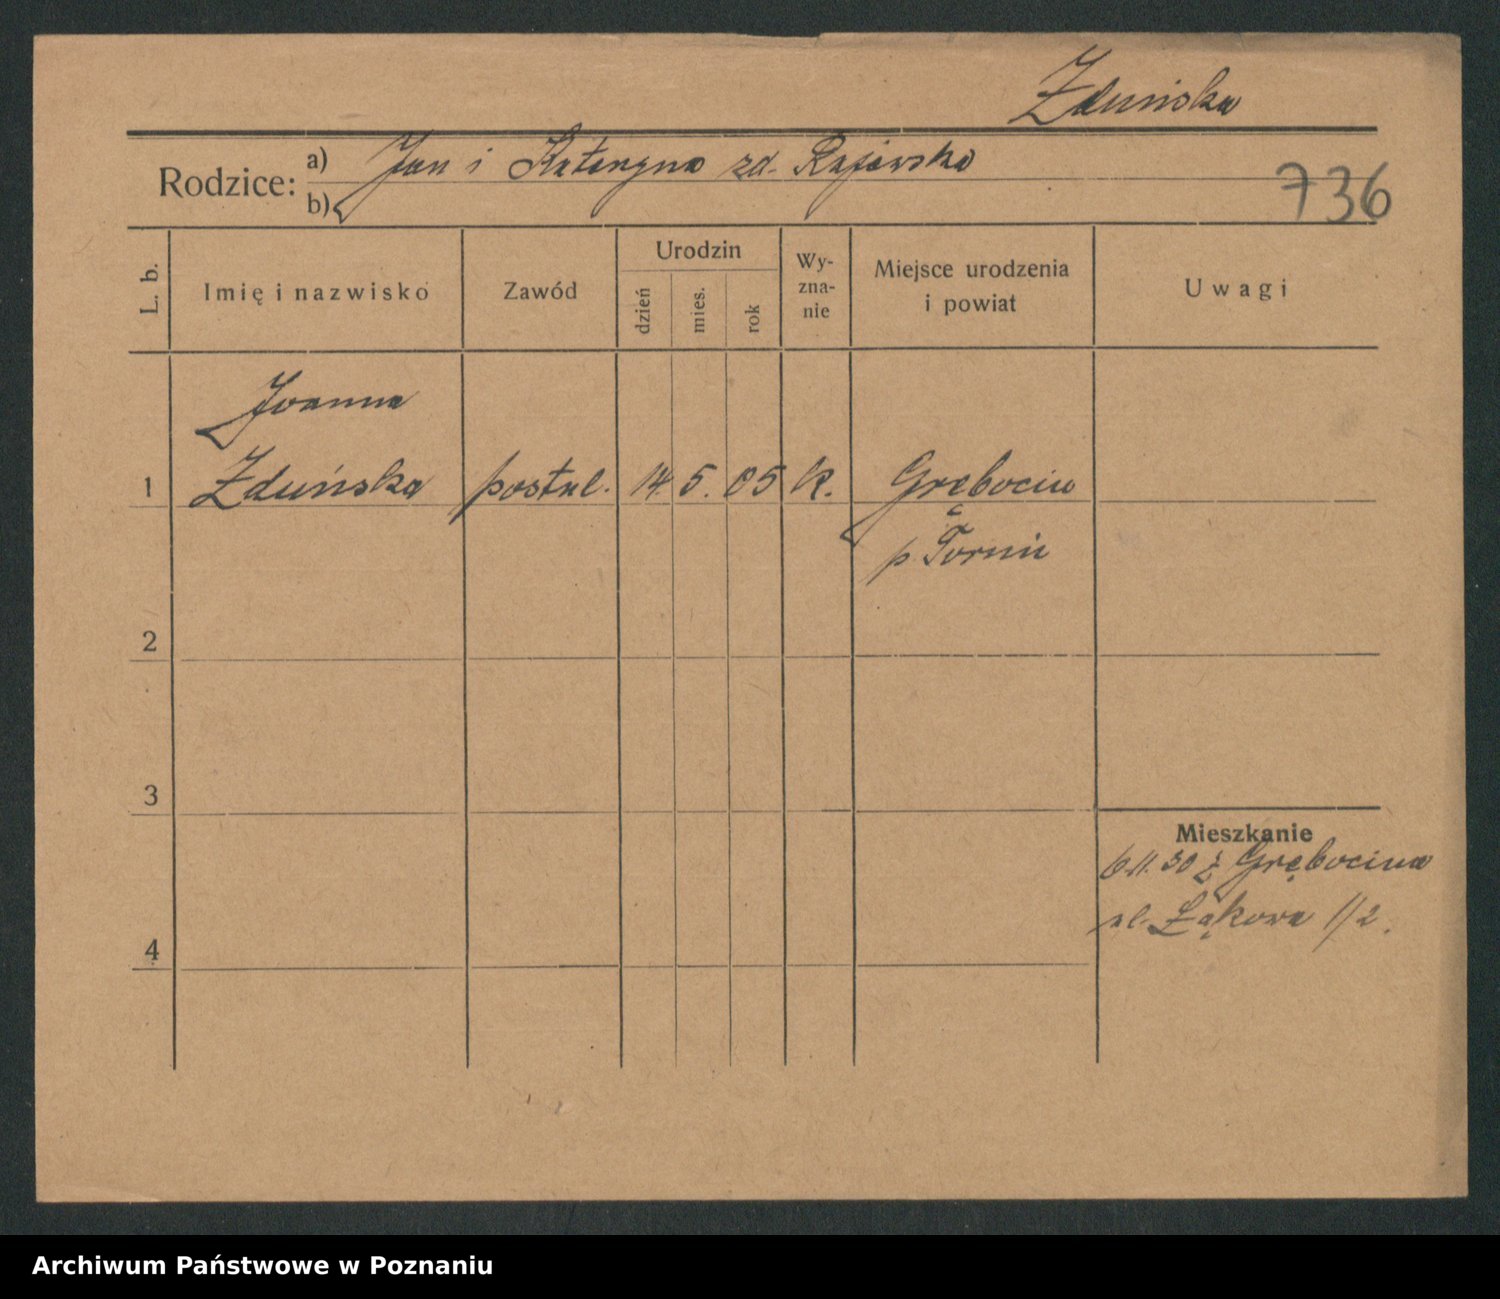 Zduńska
Rodzice: a) Jan i Katarzyna zd. Rajewska
b)
736
L. b.
Imię i nazwisko
Zawód
Urodzin
dzień
mies.
rok
Wy-
zna-
nie
Miejsce urodzenia
i powiat
Uwagi
Joanna
1 Zduńska postul. 14. 5. 05 k. Grębocin
p. Toruń
2
3
4
Mieszkanie
6.11.30 z Grębocina
ul. Łąkowa 1/2.
Archiwum Państwowe w Poznaniu